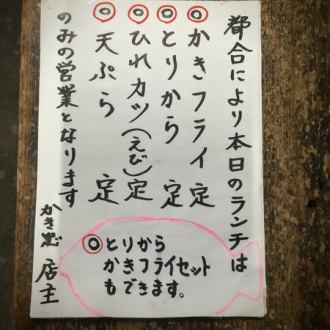 都合により本日のランチは
◎かきフライ定
◎とりから 定
◎ひれカツ(えび)定
◎天ぷら 定
のみの営業となります
店主
◎とりから
かきフライセット
もできます。